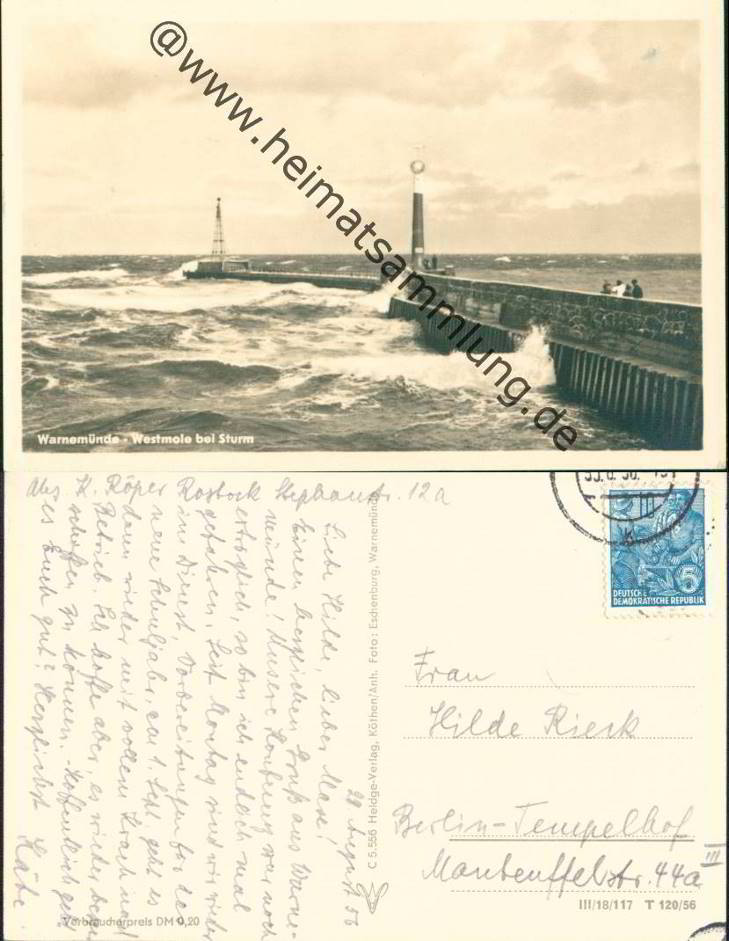 @www.heimatsammlung.de
Warnemünde - Westmole bei Sturm
Abs. K. Röper Rostock Stephanstr. 12a
29. August 56
Liebe Hilde, lieber Max!
Einen herzlichen Gruß aus Warne-
münde! Unsere war noch
erträglich, so bin ich endlich mal
gefahren. Seit Montag sind wir wieder
im Dienst, Vorbereitungen für das
neue Schuljahr, am 1. Sept. geht es
dann wieder mit vollem Krach und
Betrieb. Ich hoffe aber, es wieder
schaffen zu können. Hoffentlich geht
es Euch gut? Herzlichst Käte.
C 5.556 Heldge-Verlag, Köthen/Anh. Foto: Eschenburg, Warnemünde
DEUTSCHE
DEMOKRATISCHE REPUBLIK
5
Frau
Hilde Rieck
Berlin-Tempelhof
Manteuffelstr. 44a III
III/18/117 T 120/56
Verbraucherpreis DM 0,20